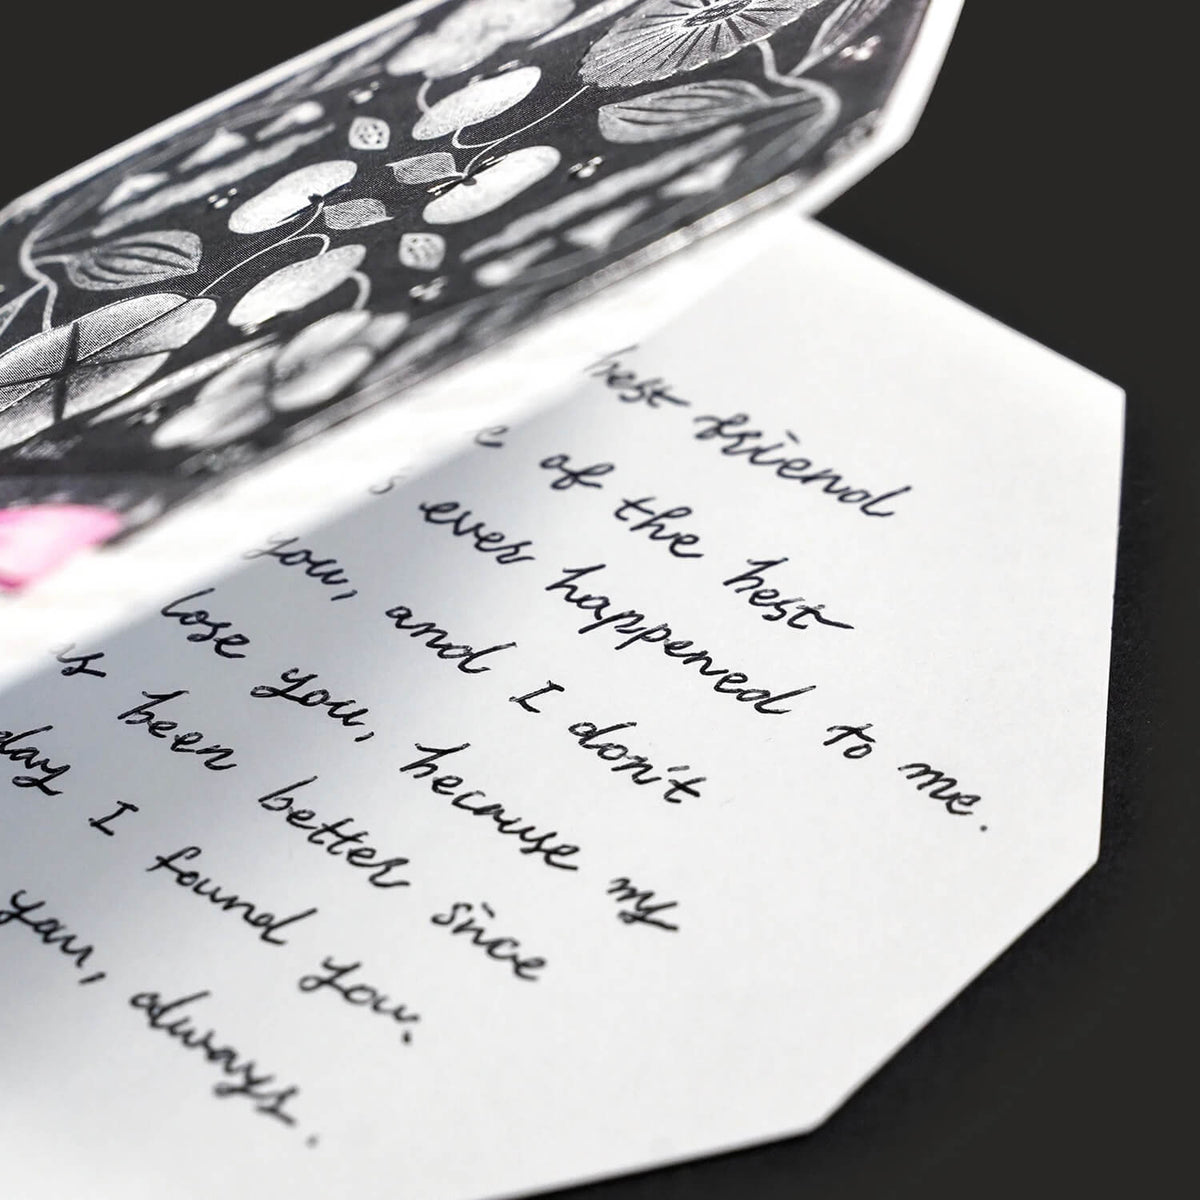 best friend
e of the best
s ever happened to me.
you, and I don't
lose you, because my
as been better since
day I found you.
you, always.